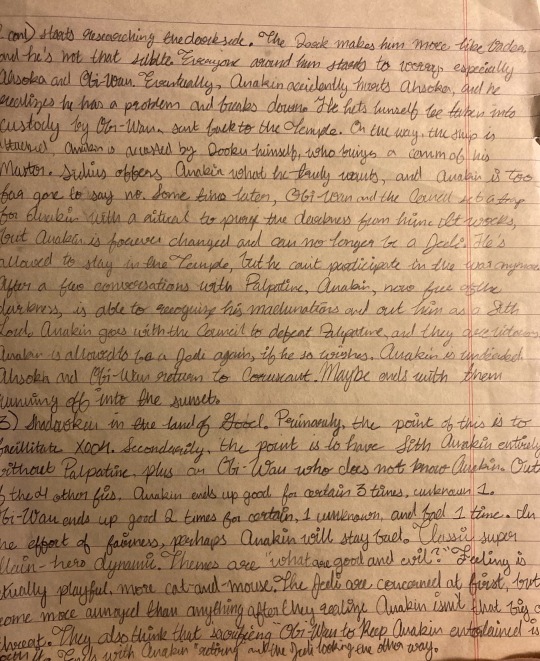 2 cont) starts researching the dark side. The Dark makes him more like Vader,
and he's not that subtle. Everyone around him starts to worry, especially
Ahsoka and Obi-Wan. Eventually, Anakin accidently hurts Ahsoka, and he
realizes he has a problem and breaks down. He lets himself be taken into
custody by Obi-Wan, sent back to the Temple. On the way, the ship is
attacked, Anakin is accosted by Dooku himself, who brings a comm of his
Master. Sidius offers Anakin what he truly wants, and Anakin is too
far gone to say no. Some time later, Obi-Wan and the Council set a trap
for Anakin with a ritual to purge the darkness from him. It works,
but Anakin is forever changed and can no longer be a Jedi. He's
allowed to stay in the Temple, but he can't participate in the war anymore.
After a few conversations with Palpatine, Anakin, now free of the
darkness, is able to recognize his machinations and out him as a Sith
Lord. Anakin goes with the Council to defeat Palpatine, and they are victorious.
Anakin is allowed to be a Jedi again, if he so wishes. Anakin is undecided.
Ahsoka and Obi-Wan return to Coruscant. Maybe ends with them
running off into the sunset.
3) in the land of Good. Primarily, the point of this is to
facilitate XOOM. Secondarily, the point is to have Sith Anakin entirely
without Palpatine, plus an Obi-Wan who does not know Anakin. Out
of the 4 other fics, Anakin ends up good for certain 3 times, unknown 1.
Obi-Wan ends up good 2 times for certain, 1 unknown, and bad 1 time. In
the effort of fairness, perhaps Anakin will stay bad. Classic super
villain-hero dynamic. Themes are "what are good and evil?" Feeling is
actually playful, more cat-and-mouse. The Jedi are concerned at first, but
come more annoyed than anything after they realize Anakin isn't that big a
threat. They also think that sacrificing Obi-Wan to keep Anakin entertained is
Ends with Anakin "retiring" and the Jedi looking the other way.